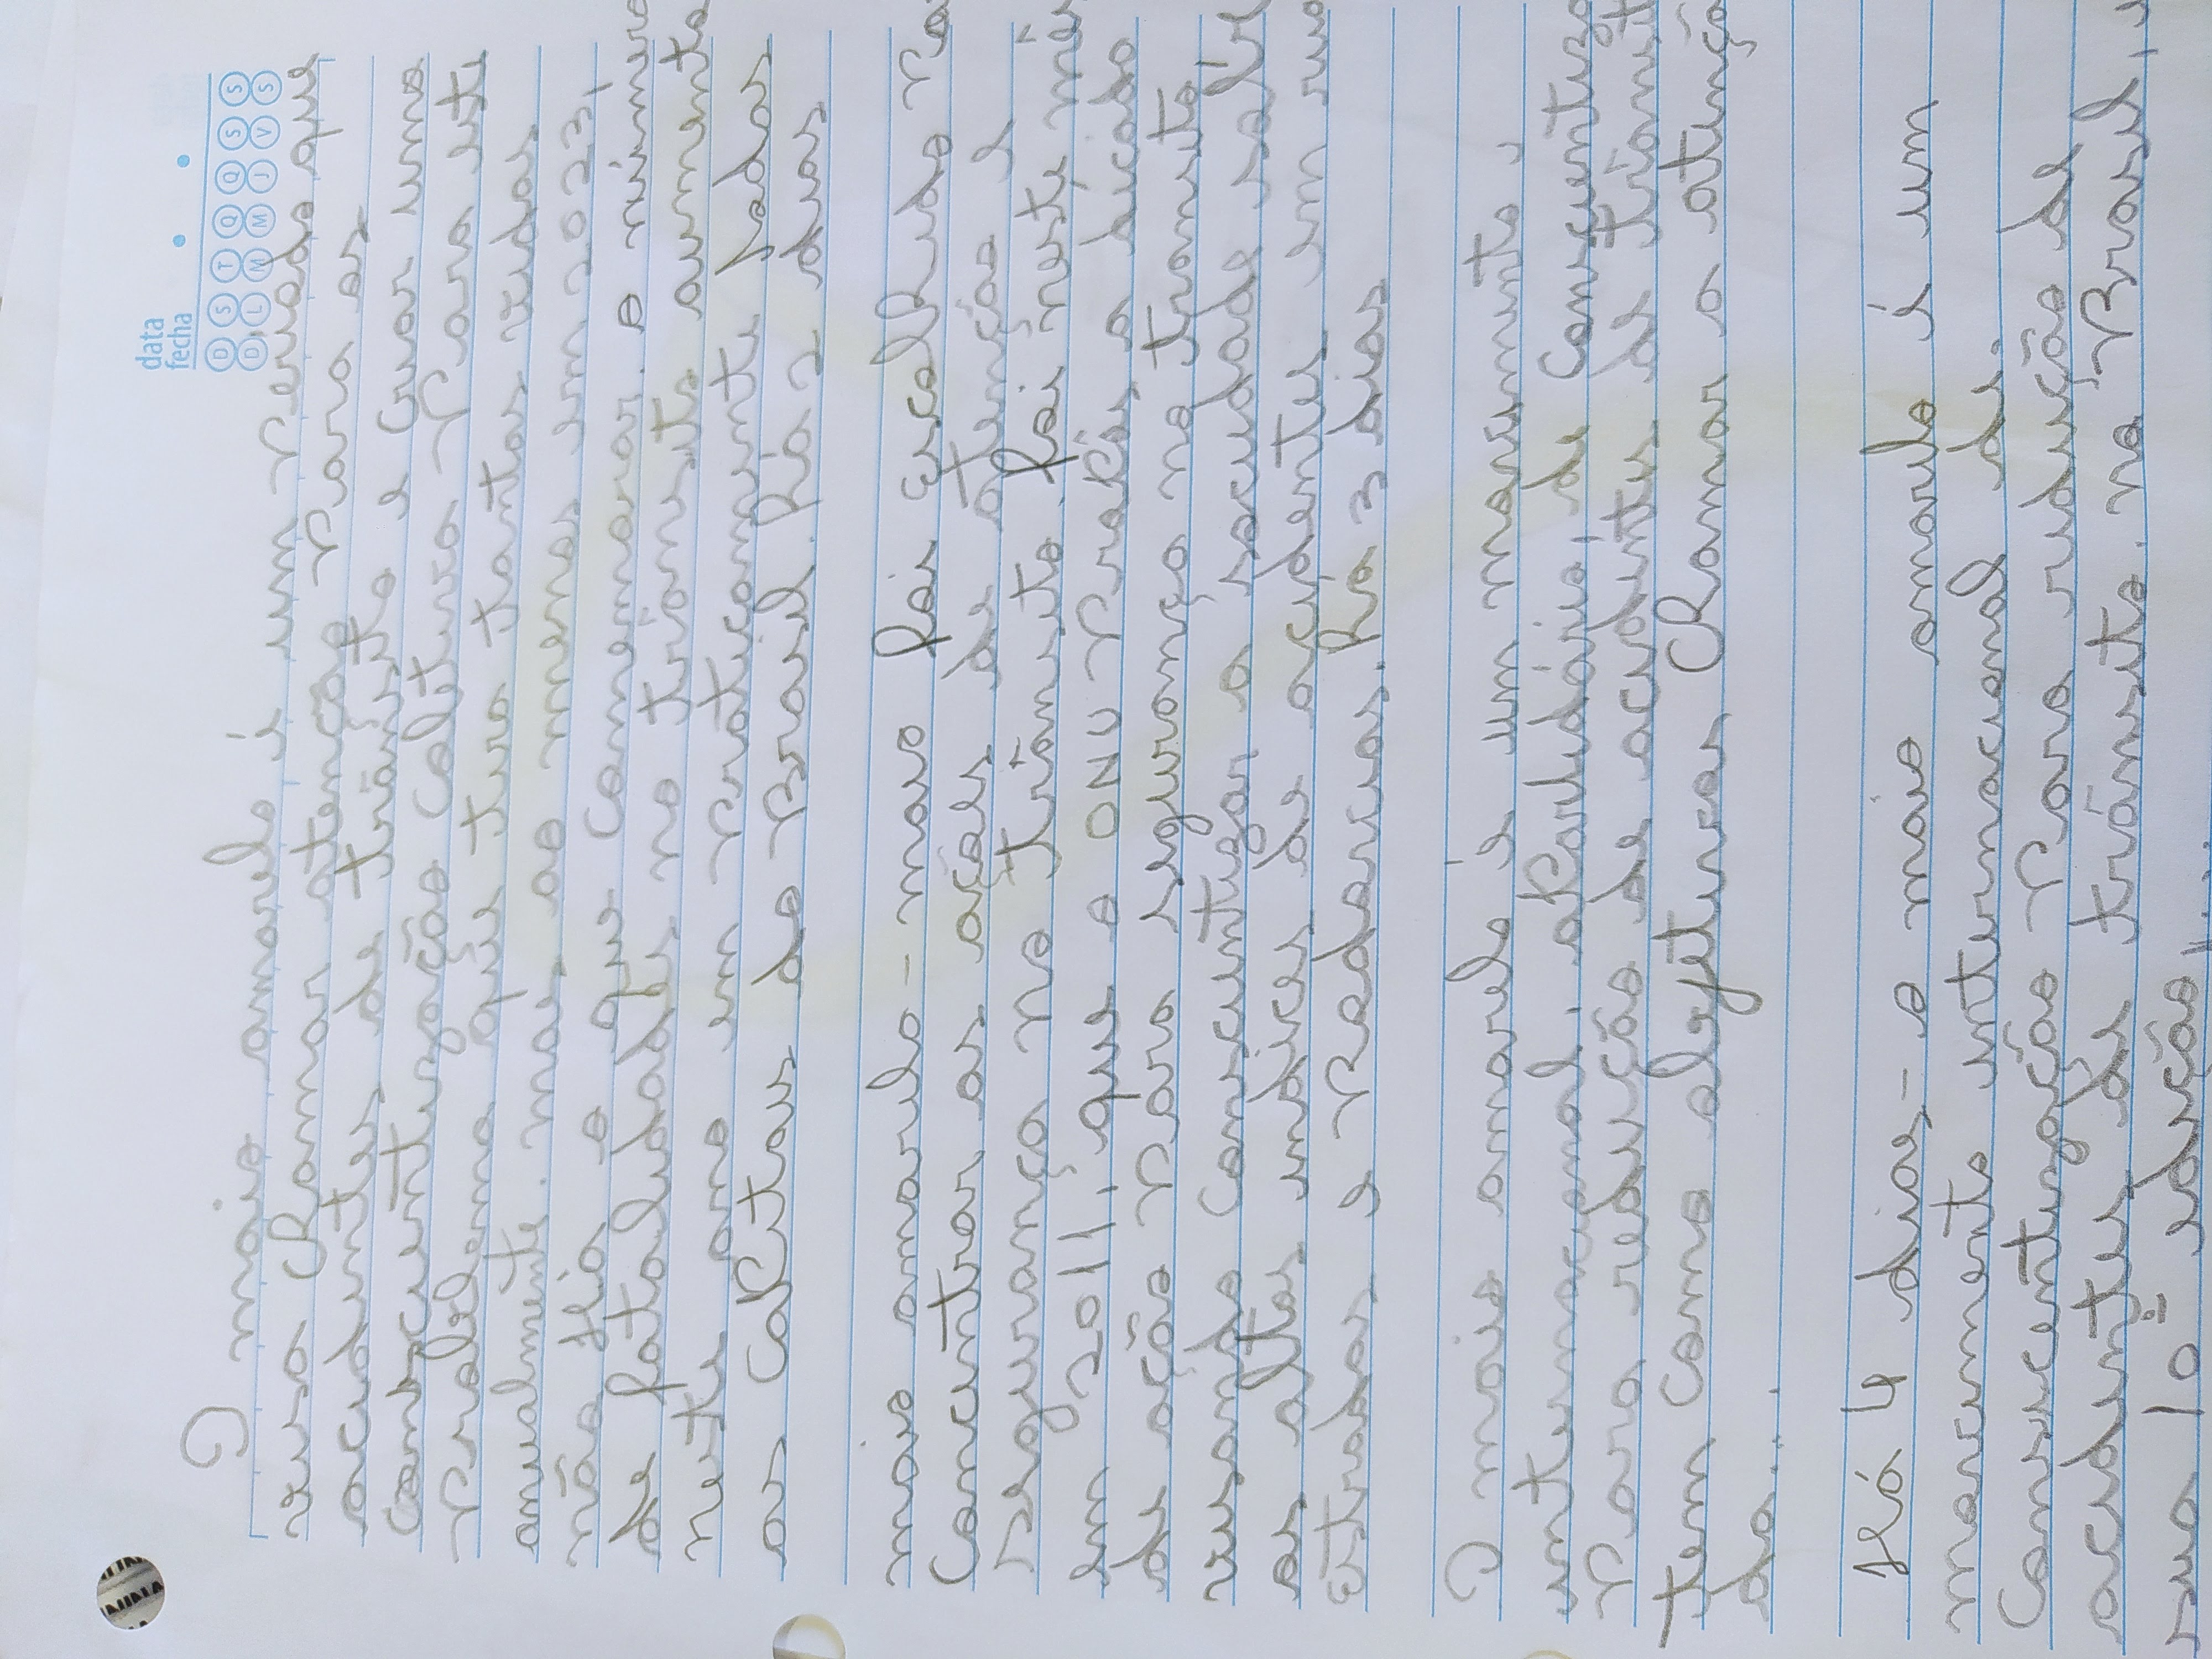 data
fecha
D S T Q Q S S
D L M M J V S
O maio amarelo é um período que
visa chamar atenção para os
acidentes de trânsito e criar uma
conscientização coletiva para este
problema que tira tantas vidas
anualmente. mas ao menos em 2023,
não Há o que comemorar. o número
de fatalidades no trânsito aumenta
neste ano em praticamente todas
as cabitais do Brasil. há 2 dias
maio amarelo - maio foi escolhido
Concentrar as ações de atenção e
segurança no trânsito. foi neste mês
em 2011, que o ONU propôs a década
de ação para segurança no trânsito,
visando conscientizar a sociedade
os altos indices de acidentes em
Estradas e Rodovias. há 3 dias
O maio amarelo é um movimento
internacional, de conscientização
Para redução de acidentes de trânsito
tem como objetivos chamar a atenção
da...
Há 4 dias - o maio amarelo é um
movimento internacional de.
Conscientização Para redução de
acidentes de trânsito. no Brasil,
sua 10ª edição